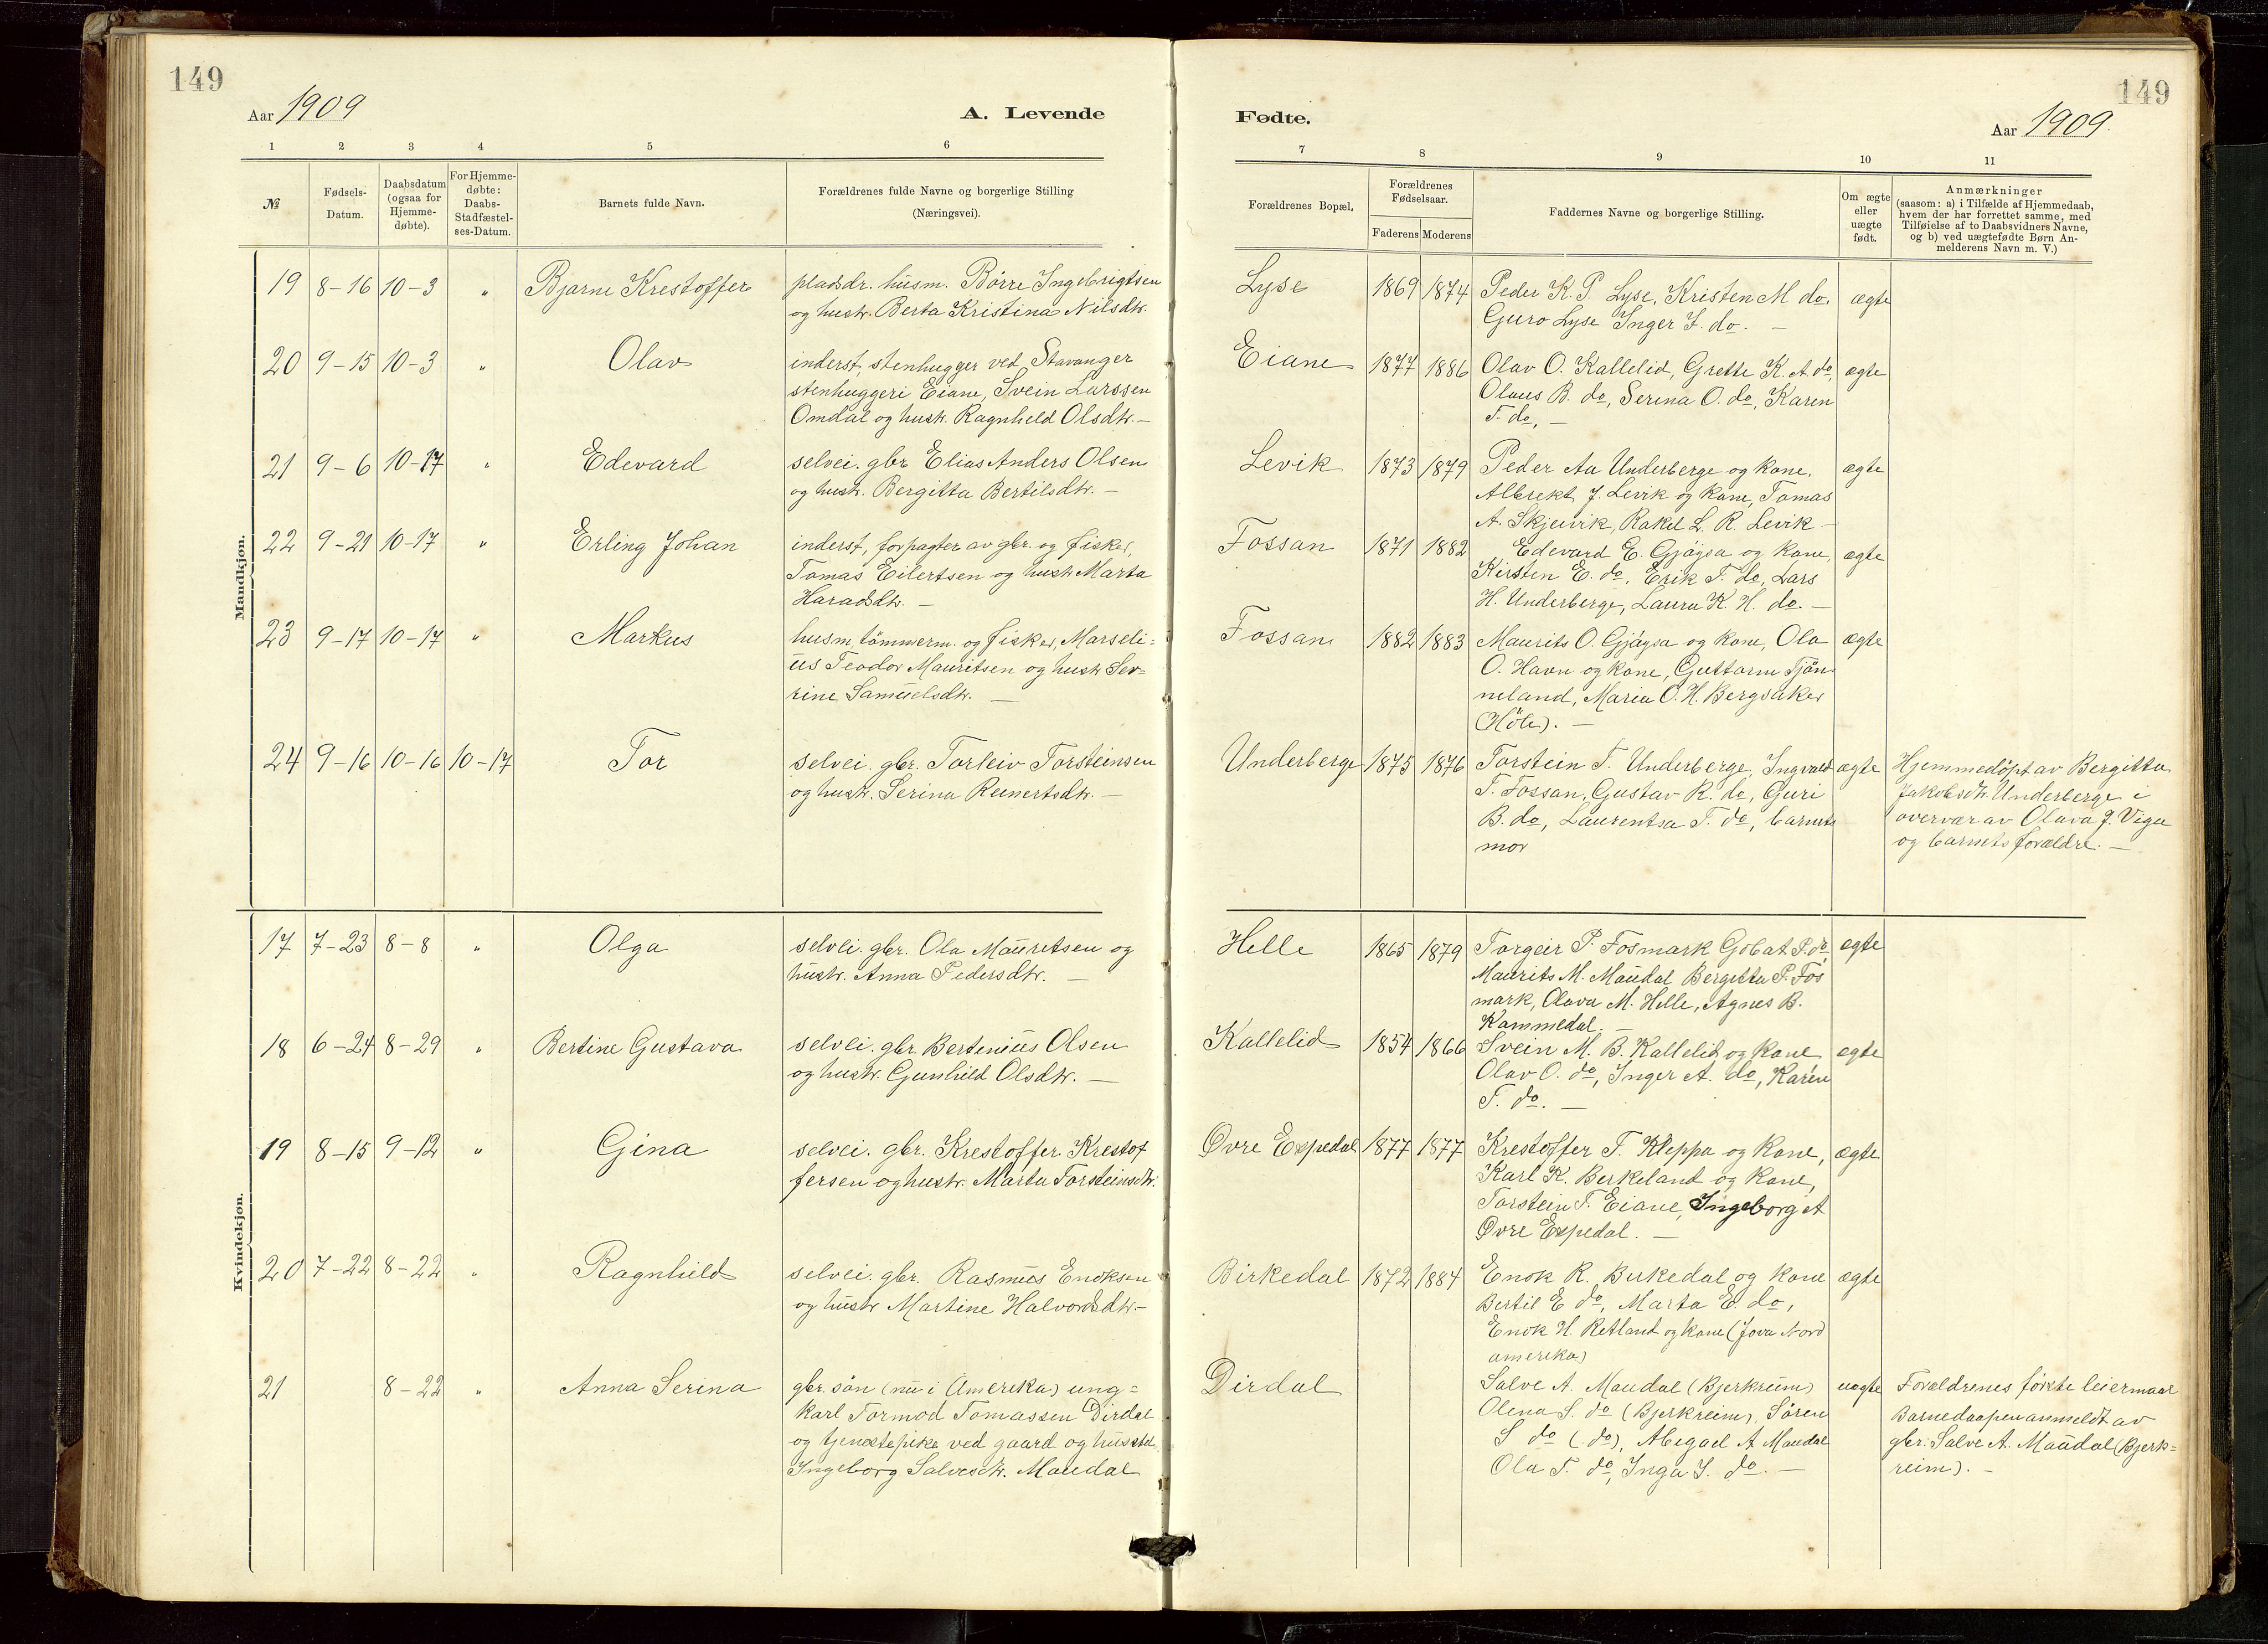 149
Aar 1909
A. Levende
1 2 3 4 5 6
№
Fødsels-
Datum.
Daabsdatum
(ogsaa for
Hjemme-
døbte).
For Hjemme-
døbte:
Daabs-
Stadfæstel-
ses-Datum.
Barnets fulde Navn.
Forældrenes fulde Navne og borgerlige Stilling
(Næringsvei).
Mandkjøn.
19 8-16 10-3 " Bjarne Krestoffer
pladsdr. husm. Börre Ingebrigtsen
og hustr. Berta Kristina Nilsdtr.
20 9-15 10-3 " Olav
inderst, stenhugger ved Stavanger
stenhuggeri Eiane, Svein Larssen
Omdal og hustr. Ragnhild Olsdtr. —
21 9-6 10-17 " Edevard
selvei. gbr Elias Anders Olsen
og hustr. Bergitta Bertilsdtr. —
22 9-21 10-17 " Erling Johan
inderst, forpagter av gbr. og fisker,
Tomas Eilertsen og hustr Marta
Haraldsdtr. —
23 9-17 10-17 " Markus
husm, tömmerm. og fisker, Marseli=
us Teodor Mauritsen og hustr Ser=
rine Samuelsdtr. —
24 9-16 10-16 10-17 Tor
selvei. gbr. Torleiv Torsteinsen
og hustr. Serina Reinertsdtr. —
Kvindekjøn.
17 7-23 8-8 " Olga
selvei. gbr. Ola Mauretsen og
hustr. Anna Pedersdtr. —
18 6-24 8-29 " Bertine Gustava
selvei. gbr. Bertinius Olsen
og hustr. Gunhild Olsdtr. —
19 8-15 9-12 " Gina
selvei. gbr. Krestoffer Krestof
fersen og hustr. Marta Torsteinsdtr.
20 7-22 8-22 " Ragnhild
selvei. gbr. Rasmus Enoksen
og hustr Martine Halvorsdtr. —
21 8-22 " Anna Serina
gbr. sön (nu i Amerika) ung=
karl Tormod Tomassen Dirdal
og tjenestepike ved gaard og husstel
Ingeborg Salvesdtr. Maudal
149
Fødte.
Aar 1909.
7 8 9 10 11
Forældrenes Bopæl.
Forældrenes
Fødselsaar.
Faderens Moderens
Faddernes Navne og borgerlige Stilling.
Om ægte
eller
uægte
født.
Anmærkninger
(saasom: a) i Tilfælde af Hjemmedaab,
hvem der har forrettet samme, med
Tilføielse af to Daabsvidners Navne,
og b) ved uægtefødte Børn An-
melderens Navn m. V.)
Lyse 1869 1874 Peder K. P. Lyse, Kristen M do. ægte
Guro Lyse Inger J. do. —
Eiane 1877 1886 Olav O. Kallelid, Grette K. A do, ægte
Olaus B. do, Serina O. do, Karen
T. do, —
Levik 1873 1879 Peder Aa Underberge og kone, ægte
Albrekt J. Levik og kone, Tomas
A. Skjeivik, Rakel L. R. Levik —
Fossan 1871 1882 Edevard E. Gjöysa og kone, ægte
Kirsten E. do, Erik T. do, Lars
H. Underberge, Laura K. H. do. —
Fossan 1882 1883 Maurits O. Gjöysa og kone, Ola ægte
O. Havn og kone, Guttorm Tjön
neland, Maria O. H. Bergsaker
(Höle). —
Underberge 1875 1876 Torstein T. Underberge, Ingvald ægte
T. Fossan, Gustav R. do, Guri
B. do, Laurentsa T. do, barnets
mor
Hjemmedöpt av Bergitta
Jakobsdtr. Underberge i
overvær av Olava J. Viga
og barnets forældre. —
Helle 1865 1879 Torgeir P. Fosmark Gobat P. do, ægte
Maurits M. Maudal Bergitta P. Fos
mark, Olava M. Helle, Agnes B.
Kommedal. —
Kallelid 1854 1866 Svein M. B. Kallelid og kone ægte
Olav O. do, Inger A. do, Karen
T. do. —
Øvre Espedal 1877 1877 Krestoffer T. Kleppa og kone, ægte
Karl K. Berkeland og kone,
Torstein T. Eiane, Ingeborg A
Øvre Espedal. —
Birkedal 1872 1884 Enok R. Birkedal og kone ægte
Bertil E do, Marta E. do,
Enok H. Retland og kone (Jova Nord
amerika)
Dirdal Salve A. Maudal (Bjerkreim) uægte
Olena S. do (Bjerkreim), Sören
S do (do), Abegael A Maudal
Ola T. do, Inga J. do. —
Forældrenes förste leiermaal
Barnedaapen anmeldt av
gbr. Salve A. Maudal (Bjerk=
reim). —